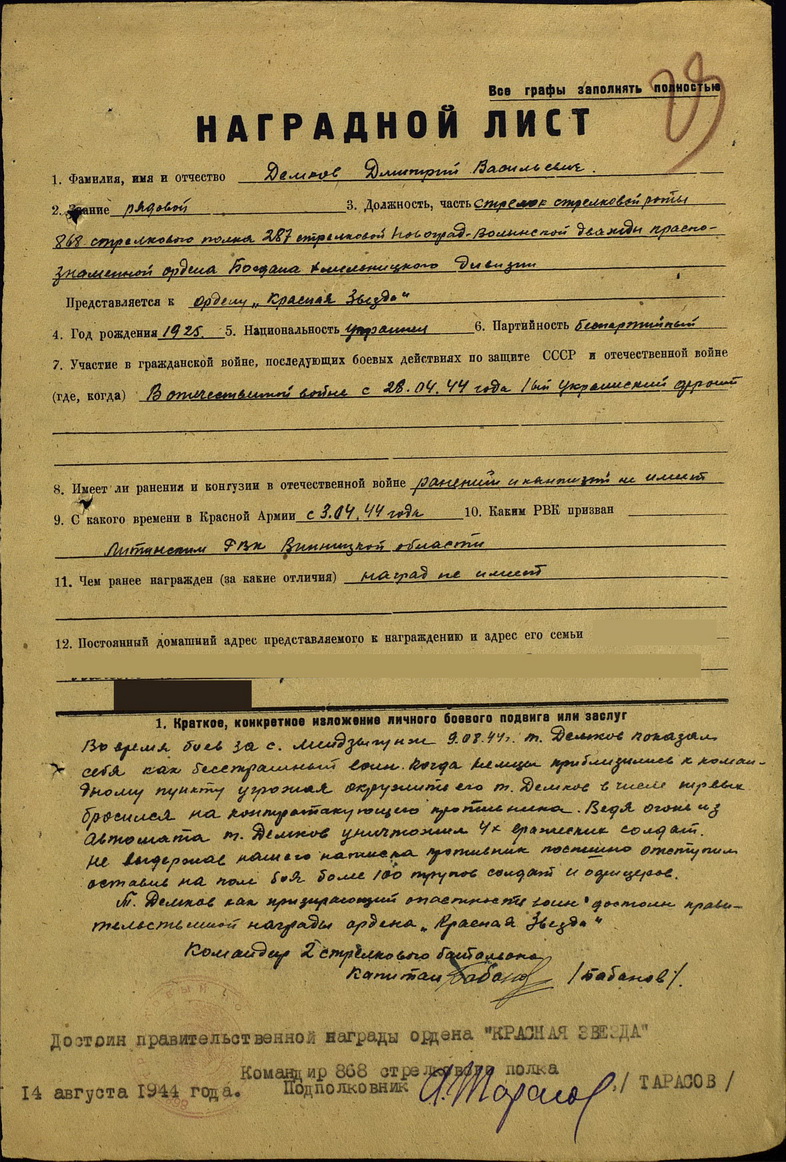 Все графы заполнять полностью
НАГРАДНОЙ ЛИСТ
1. Фамилия, имя и отчество Демков Дмитрий Васильевич.
2. Звание рядовой 3. Должность, часть стрелок стрелковой роты
868 стрелкового полка 287 стрелковой Новоград-Волынской дважды красно-
знаменной ордена Богдана Хмельницкого Дивизии
Представляется к ордену „Красная Звезда"
4. Год рождения 1925. 5. Национальность украинец 6. Партийность беспартийный
7. Участие в гражданской войне, последующих боевых действиях по защите СССР и отечественной войне
(где, когда) В отечественной войне с 28.04.44 года 1ый Украинский фронт
8. Имеет ли ранения и контузии в отечественной войне ранений и контузий не имеет
9. С какого времени в Красной Армии с 3.04.44 года 10. Каким РВК призван
Литинским РВК Винницкой области
11. Чем ранее награжден (за какие отличия) наград не имеет
12. Постоянный домашний адрес представляемого к награждению и адрес его семьи
1. Краткое, конкретное изложение личного боевого подвига или заслуг
Во время боев за с. 9.08.44г. т. Демков показал
себя как бесстрашный воин. Когда немцы приблизились к коман-
дному пункту угрожая окружить его т. Демков в числе первых
бросился на контратакующего противника. Ведя огонь из
автомата т. Демков уничтожил 4х вражеских солдат.
Не выдержав нашего натиска противник поспешно отступил
оставив на поле боя более 100 трупов солдат и офицеров.
Т. Демков как призирающий опасность воин достоин прави-
тельственной награды ордена „Красная Звезда"
Командир 2 стрелкового батальона
Капитан /Бабанов/.
Достоин правительственной награды ордена "КРАСНАЯ ЗВЕЗДА"
Командир 868 стрелкового полка
14 августа 1944 года. Подполковник А. Тарасов /ТАРАСОВ/